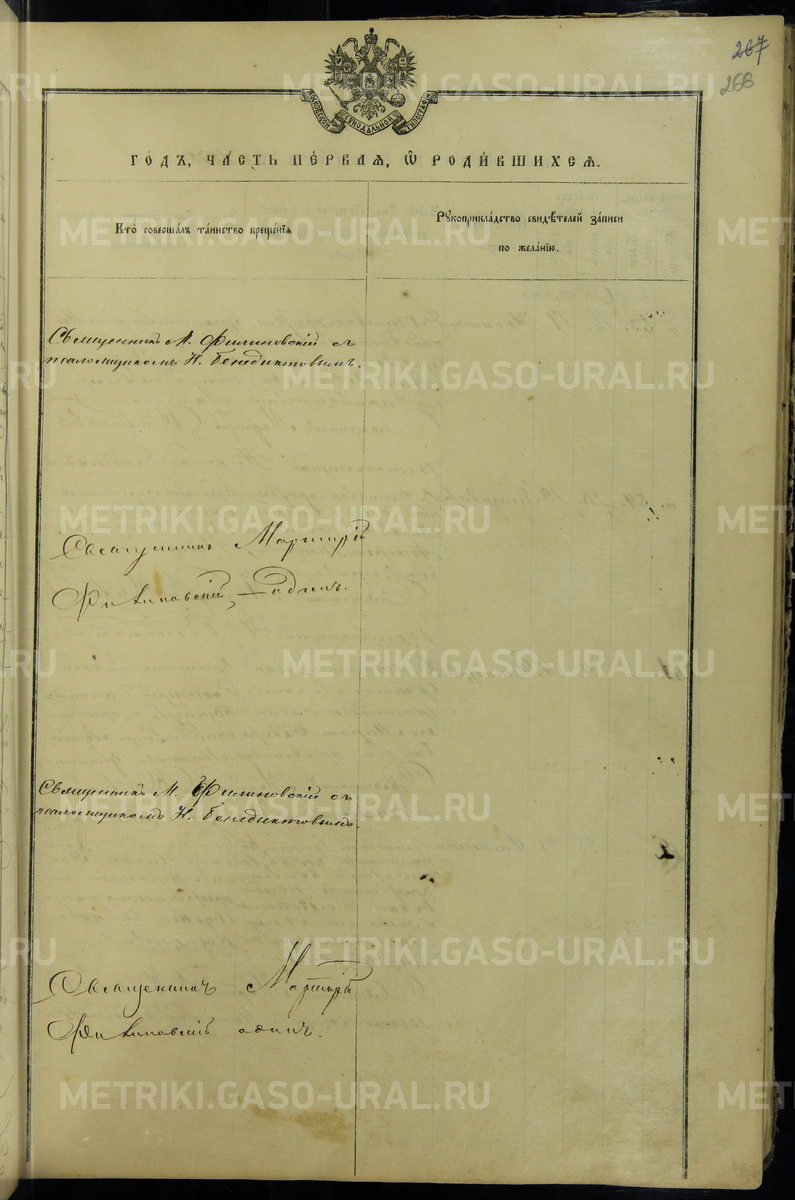 267
268
МОСКОВСКОЙ СѴНОДАЛЬНОЙ ТИПОГРАФІИ
ГО́ДЪ, ЧА́СТЬ ПЕ́РВАѦ, Ѽ РОДИ́ВШИХСѦ.
Кто̀ соверша́лъ та́инство креще́нїѧ
Рꙋкоприкла́дство свидѣ́телей за́писи
по жела́нїю.
Священникъ М. Филиновскій съ
псаломщикомъ Н. Бенедиктовымъ.
Священникъ Мартирій
Филиновскій, одинъ.
Священникъ М. Филиновскій съ
псаломщикомъ Н. Бенедиктовымъ.
Священникъ Мартирій
Филиновскій одинъ.
METRIKI.GASO-URAL.RU